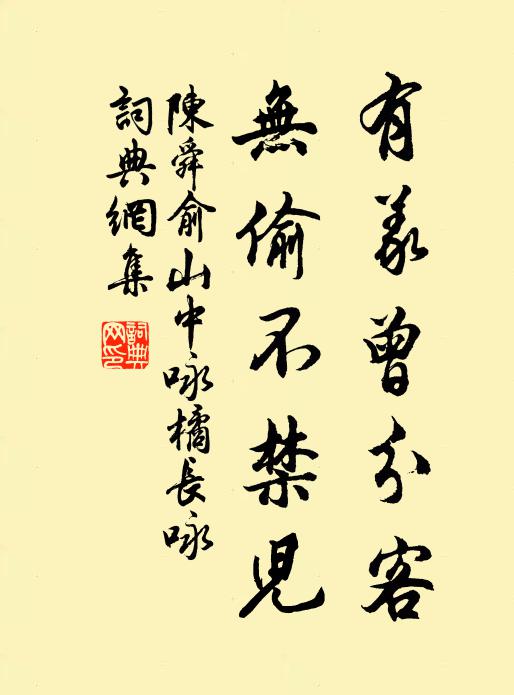 有羨曾分客
無偷不禁兒
陳舜俞山中咏橘長咏
詞典網集
詞典网印